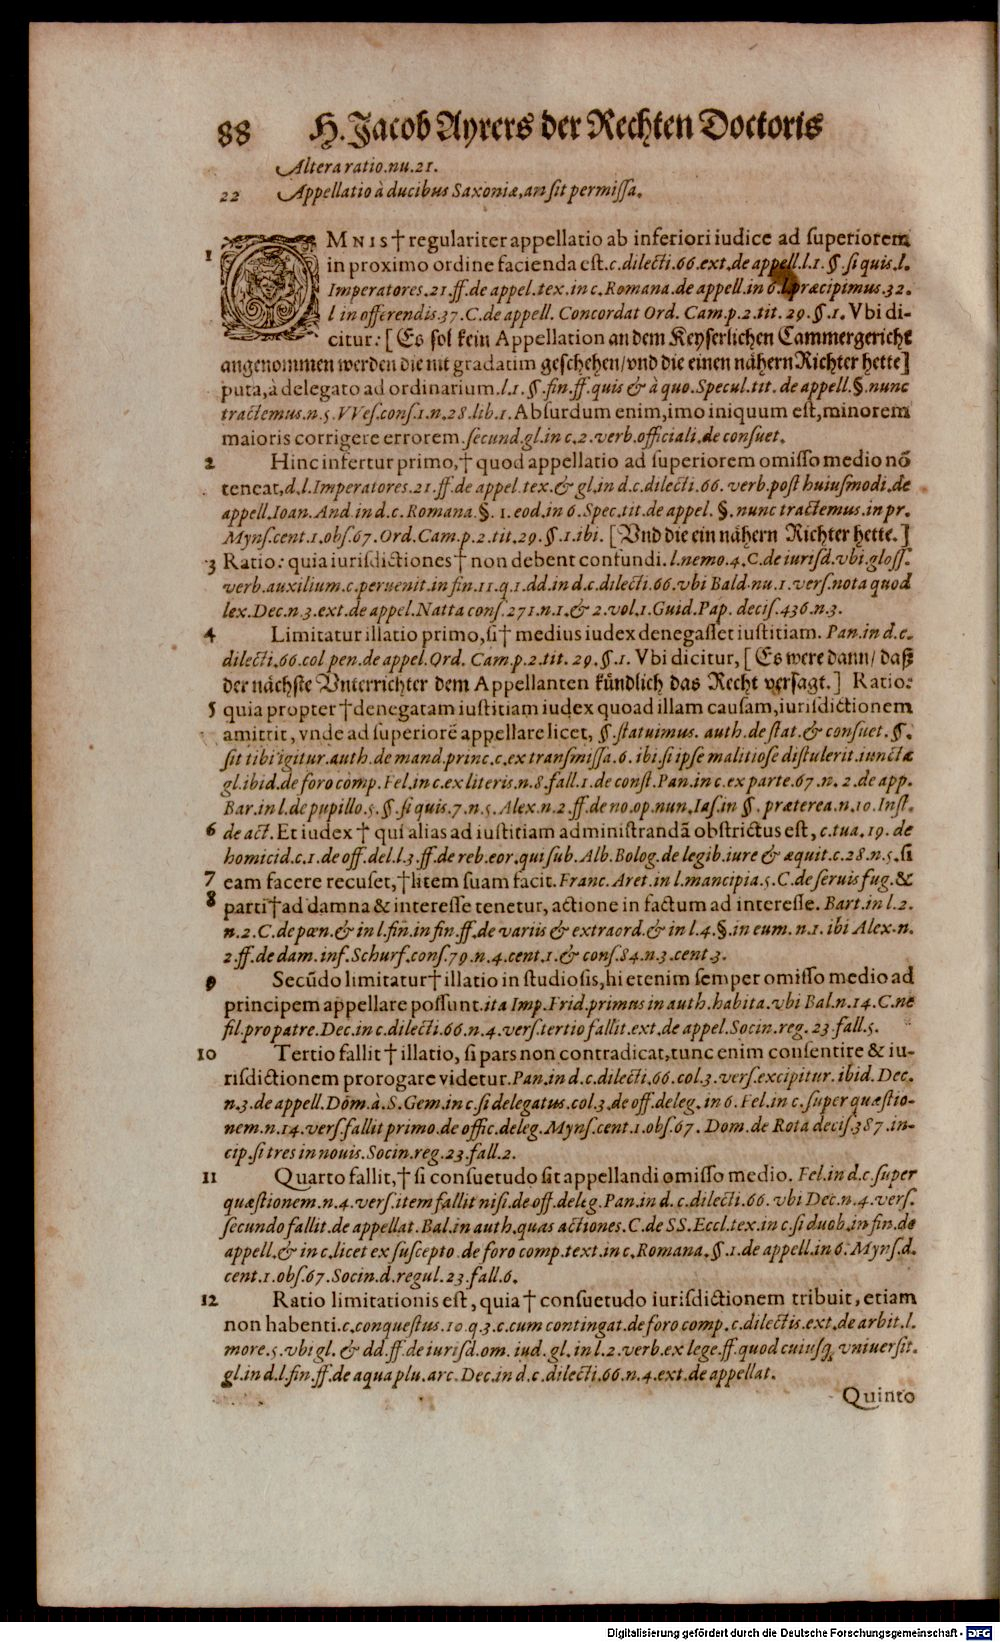 88 H. Jacob Ayrers der Rechten Doctoris
Altera ratio.nu.21.
22 Appellatio à ducibus Saxoniæ,an sit permissa.
1 OMNIS † regulariter appellatio ab inferiori iudice ad superiorem
in proximo ordine facienda est.c.dilecti.66.ext.de appell.l.1.§.si quis.l.
Imperatores.21.ff.de appel.tex.in c.Romana.de appell.in 6.l.præcipimus.32.
l in offerendis.37.C.de appell. Concordat Ord. Cam.p.2.tit. 29.§.1. Vbi di-
citur: [Es sol kein Appellation an dem Keyserlichen Cammergericht
angenommen werden die nit gradatim geschehen/vnd die einen nähern Richter hette]
puta,à delegato ad ordinarium.l.1.§.fin.ff.quis & à quo.Specul.tit. de appell.§.nunc
tractemus.n.5.VVes.cons.1.n.28.lib.1.Absurdum enim,imo iniquum est,minorem
maioris corrigere errorem.secund.gl.in c.2.verb.officiali.de consuet.
2 Hinc infertur primo,† quod appellatio ad superiorem omisso medio nō
teneat,d.l.Imperatores.21.ff.de appel.tex.& gl.in d.c.dilecti.66. verb.post huiusmodi.de
appell.Ioan. And.in d.c. Romana.§. 1.eod.in 6.Spec.tit.de appel. §.nunc tractemus.in pr.
Myns.cent.1.obs.67. Ord.Cam.p.2.tit.29.§.1.ibi. [Vnd die ein nähern Richter hette.]
3 Ratio: quia iurisdictiones† non debent confundi.l.nemo.4.C.de iurisd.vbi gloss.
verb.auxilium.c.peruenit.in fin.11.q.1.dd.in d.c.dilecti.66.vbi Bald.nu.1.vers.nota quod
lex.Dec.n.3.ext.de appel.Natta cons.271.n.1.& 2.vol.1.Guid.Pap. decis.436.n.3.
4 Limitatur illatio primo,si† medius iudex denegasset iustitiam. Pan.in d.c.
dilecti.66.col pen.de appel.Ord. Cam.p.2.tit. 29.§.1. Vbi dicitur, [Es were dann/ daß
der nächste Vnterrichter dem Appellanten kündlich das Recht versagt.] Ratio:
5 quia propter †denegatam iustitiam iudex quoad illam causam,iurisdictionem
amittit, vnde ad superiorē appellare licet, §.statuimus. auth.de stat.& consuet.§.
sit tibi igitur.auth.de mand.princ.c.ex transmissa.6. ibi si ipse malitiose distulerit.iuncta
gl.ibid.de foro comp. Fel.in c.ex literis.n.8.fall.1.de const.Pan.in c.ex parte.67.n. 2.de app.
Bar.in l.de pupillo.5.§.si quis.7.n.5.Alex.n.2.ff.de no.op.nun.Ias.in §. præterea.n.10.Inst.
6 de act. Et iudex † qui alias ad iustitiam administrandā obstrictus est, c.tua.19. de
homicid.c.1.de off.del.l.3.ff.de reb.eor.qui sub. Alb.Bolog.de legib.iure & æquit.c.28.n.5.si
7 eam facere recuset,†litem suam facit.Franc. Aret.in l.mancipia.5.C.de seruis fug.&
8 parti†ad damna & interesse tenetur, actione in factum ad interesse. Bart.in l.2.
n.2.C.de pœn.& in l.fin.in fin.ff.de variis & extraord.& in l.4.§.in eum. n.1. ibi Alex.n.
2.ff.de dam.inf.Schurf.cons.79.n.4.cent.1.& cons.84.n.3.cent.3.
9 Secūdo limitatur† illatio in studiosis,hi etenim semper omisso medio ad
principem appellare possunt.ita Imp.Frid.primus in auth.habita.vbi Bal.n.14.C.ne
fil.pro patre.Dec.in c.dilecti.66.n.4.vers.tertio fallit.ext.de appel.Socin.reg. 23.fall.5.
10 Tertio fallit † illatio, si pars non contradicat,tunc enim consentire & iu-
risdictionem prorogare videtur.Pan.in d.c.dilecti.66.col.3.vers.excipitur. ibid.Dec.
n.3.de appell.Dom.à.S.Gem.in c.si delegatus.col.3.de off.deleg. in 6.Fel.in c.super quæstio-
nem.n.14.vers.fallit primo.de offic.deleg.Myns.cent.1.obs.67. Dom.de Rota decis.387.in-
cip.si tres in nouis.Socin.reg.23.fall.2.
11 Quarto fallit,† si consuetudo sit appellandi omisso medio. Fel.in d.c.super
quæstionem.n.4.vers.item fallit nisi.de off.deleg.Pan.in d. c.dilecti.66. vbi Dec.n.4.vers.
secundo fallit.de appellat.Bal.in auth.quas actiones.C.de SS.Eccl.tex.in c.si duob.in fin.de
appell.& in c.licet ex suscepto.de foro comp.text.in c.Romana.§.1.de appell.in 6. Myns.d.
cent.1.obs.67.Socin.d.regul.23.fall.6.
12 Ratio limitationis est, quia† consuetudo iurisdictionem tribuit, etiam
non habenti.c.conquestus.10.q.3.c.cum contingat.de foro comp.c.dilectis.ext.de arbit.l.
more.5.vbi gl. & dd.ff.de iurisd.om. iud.gl.in l.2.verb.ex lege.ff.quod cuiusq; vniuersit.
gl.in d.l.fin.ff.de aqua plu.arc.Dec.in d.c.dilecti.66.n.4.ext.de appellat.
Quinto
Digitalisierung gefördert durch die Deutsche Forschungsgemeinschaft - DFG